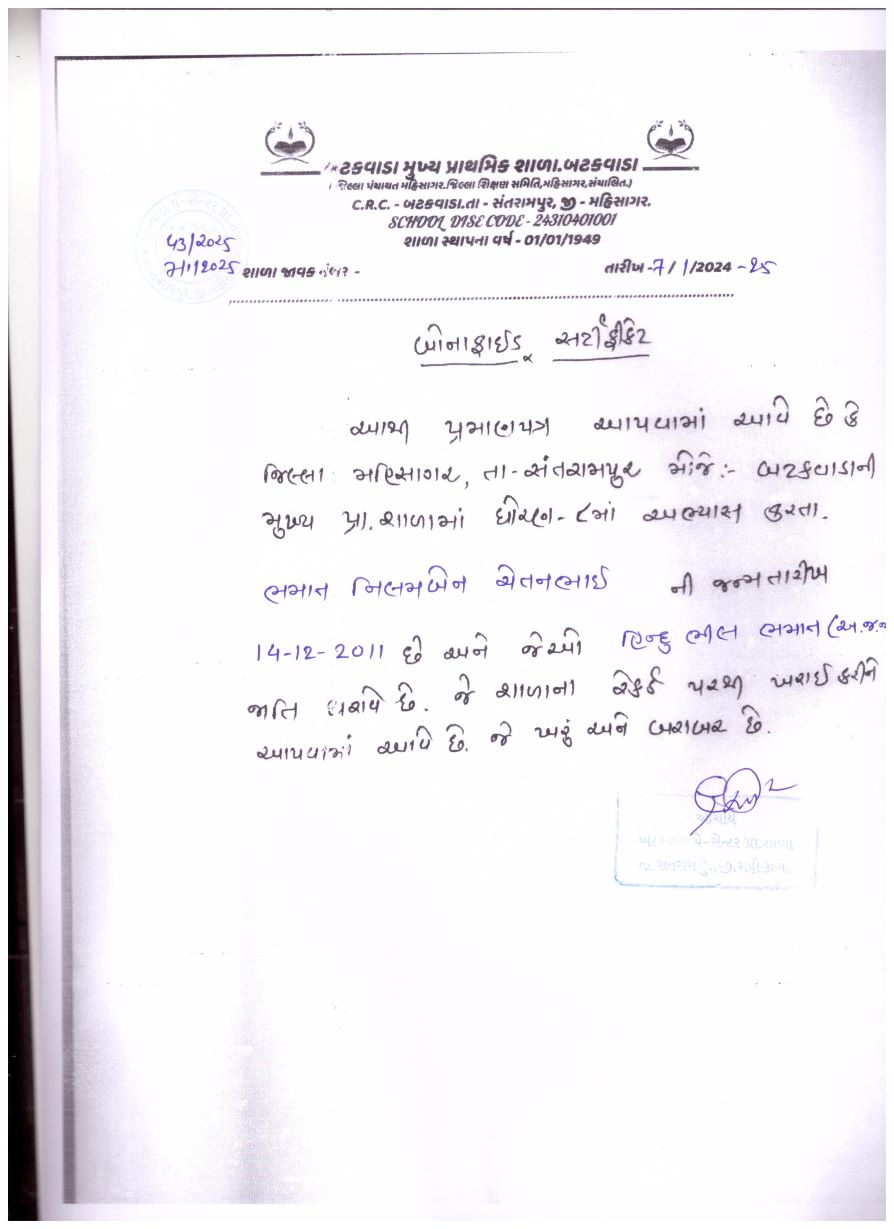 બટકવાડા મુખ્ય પ્રાથમિક શાળા.બટકવાડા
જિલ્લા પંચાયત મહિસાગર.જિલ્લા શિક્ષણ સમિતિ,મહિસાગર,સંચાલિત.)
C.R.C. - બટકવાડા.તા - સંતરામપુર, જી - મહિસાગર.
SCHOOL DISE CODE - 24310401001
શાળા સ્થાપના વર્ષ - 01/01/1949
43/2025
7/1/2025 શાળા જાવક નંબર - તારીખ -7/1/2024 -25
બોનાફાઈડ સર્ટીફીકેટ
આથી પ્રમાણપત્ર આપવામાં આવે છે કે
જિલ્લા મહિસાગર, તા-સંતરામપુર મોજે :- બટકવાડાની
મુખ્ય પ્રા. શાળામાં ધોરણ - ૮માં અભ્યાસ કરતા.
ભમાત નિલમબેન ચેતનભાઈ ની જન્મ તારીખ
14-12-2011 છે અને જેઓ હિન્દુ ભીલ ભમાત (અ.જ.જ
જાતિ ધરાવે છે. જે શાળાના રેકર્ડ પરથી ખરાઈ કરીને
આપવામાં આવે છે. જે ખરું અને બરાબર છે.
આચાર્ય